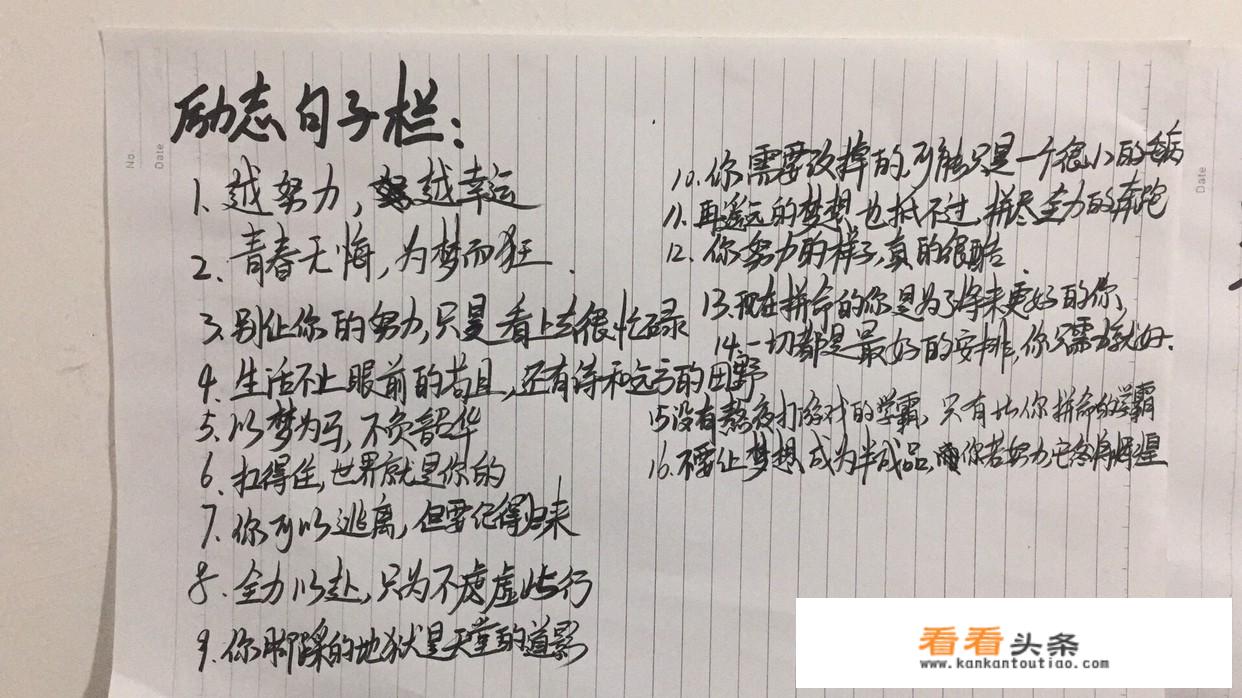 励志句子栏:
1. 越努力, 越幸运
2. 青春无悔,为梦而狂.
3. 别让你的努力,只是看上去很忙碌
4. 生活不止眼前的苟且,还有诗和远方的田野
5. 以梦为马,不负韶华
6. 扛得住,世界就是你的
7. 你可以逃离,但要记得归来
8. 全力以赴,只为不虚此行
9. 你脚踩的地狱是天堂的道影
10. 你需要改掉的,可能只是一个很小的毛病
11. 再遥远的梦想也抵不过拼尽全力的奔跑
12. 你努力的样子,真的很酷.
13. 现在拼命的你是为了将来更好的你,
14. 一切都是最好的安排,你只需 就好.
15 没有熬夜打游戏的学霸,只有比你拼命的学霸
16. 不要让梦想成为半成品,你若努力,它终将辉煌
No.
Date
Date
看看头条
www.kankantoutiao.com